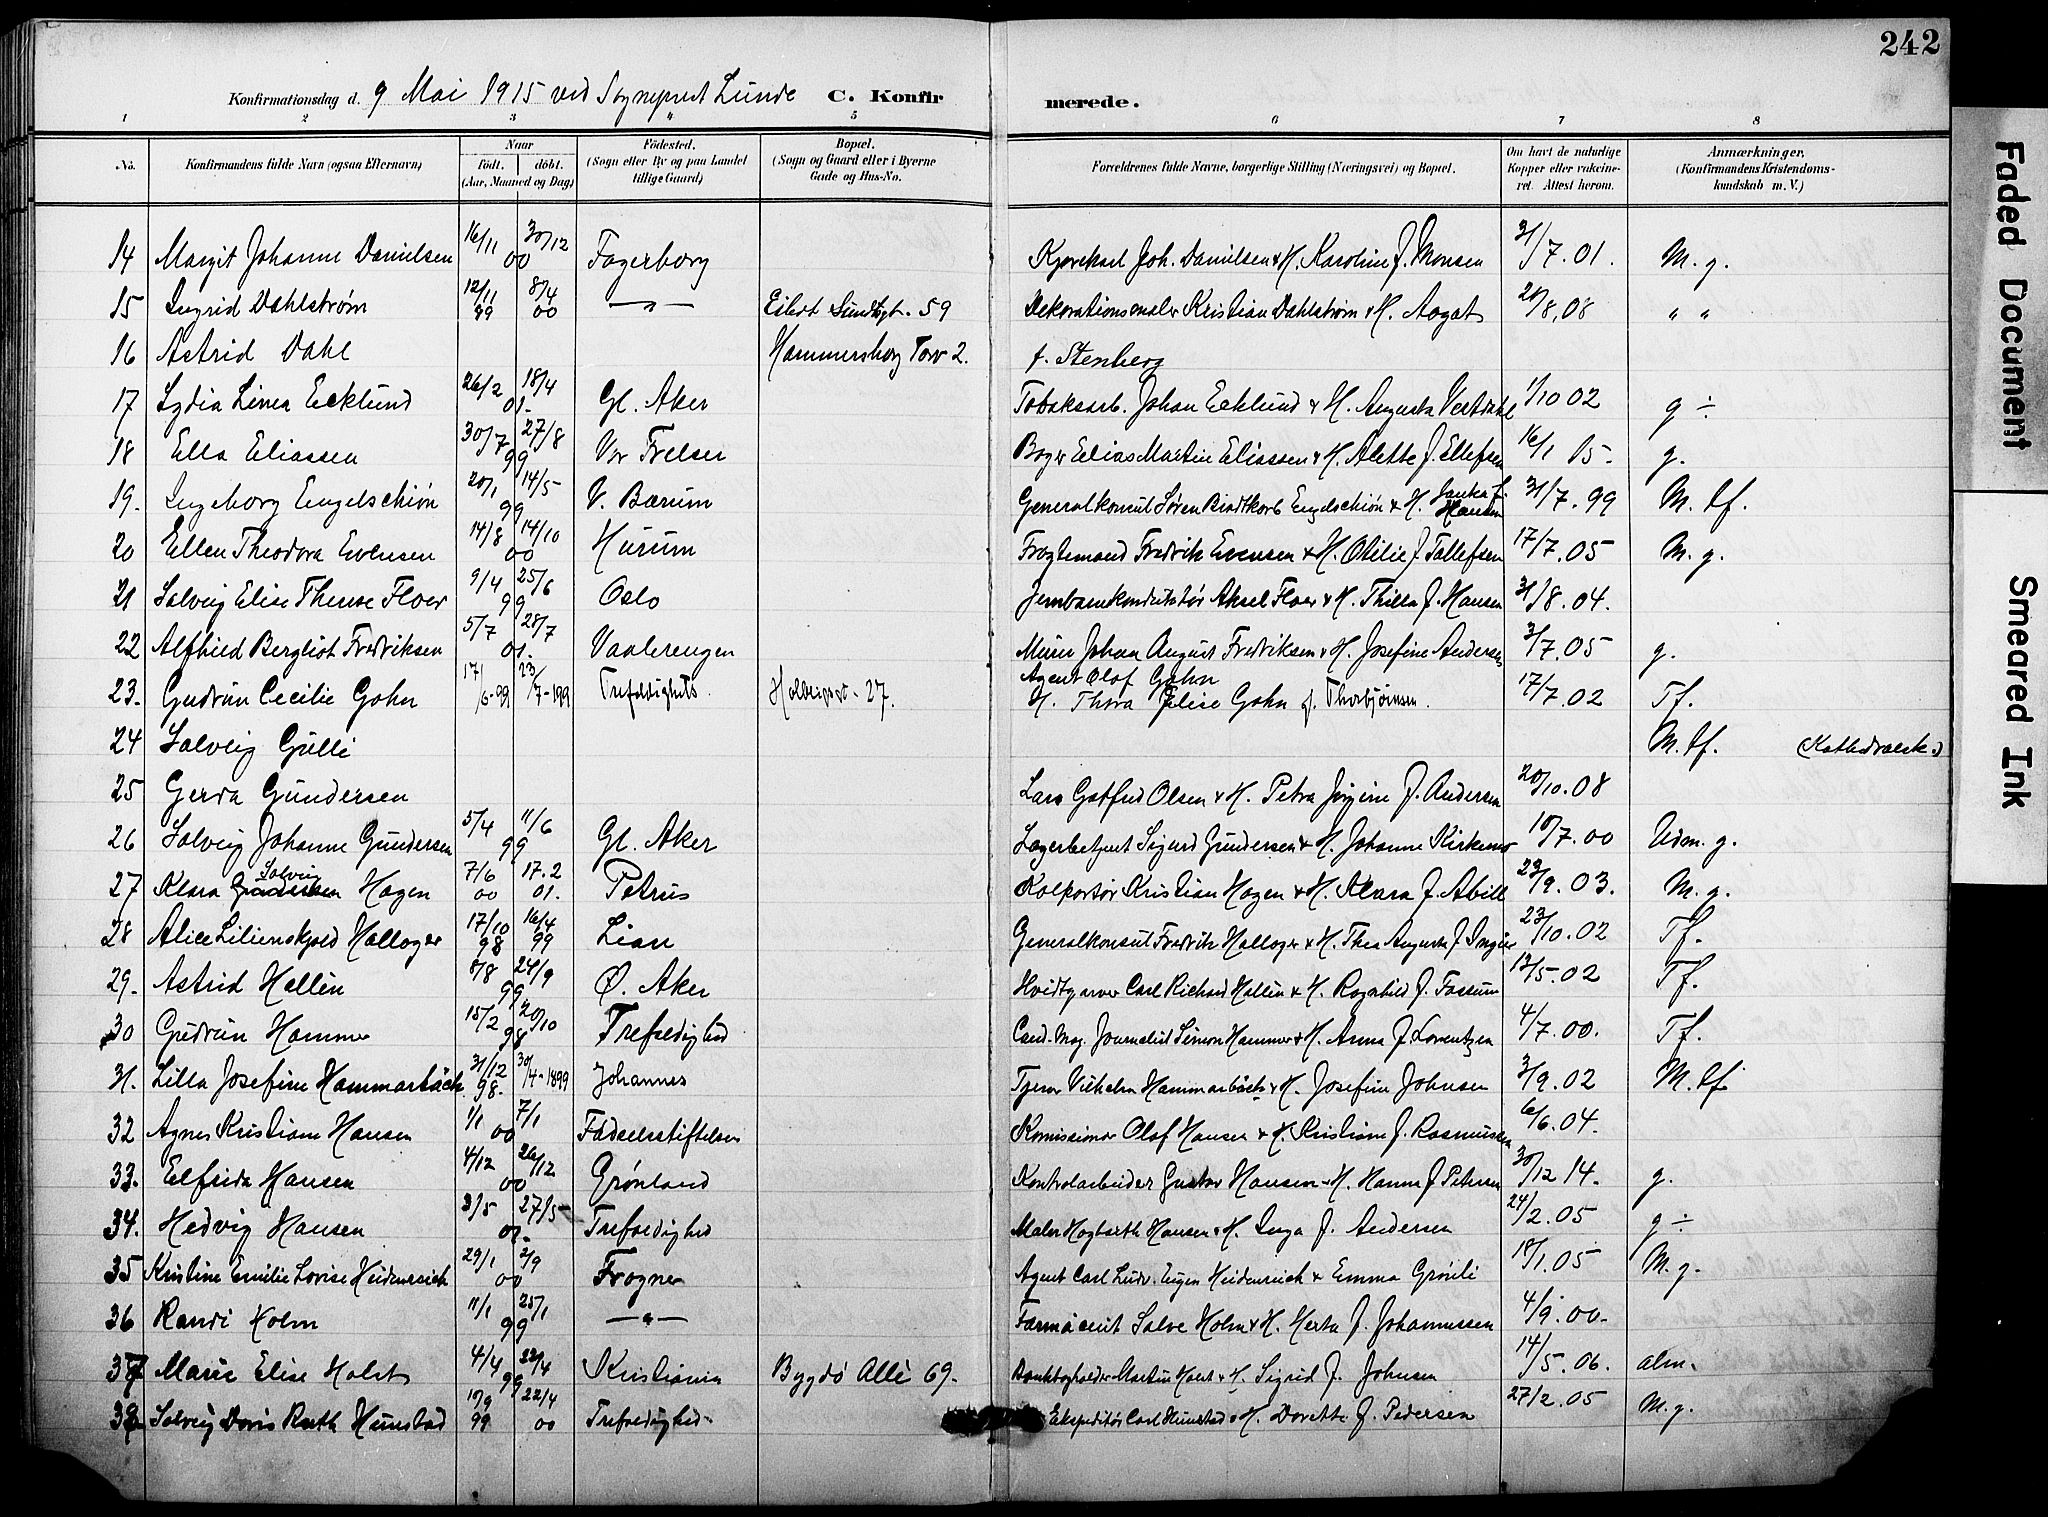 242
Konfirmationsdag d. 9 Mai 1915 ved Sogneprest Lunde C. Konfirmerede.
1 2 3 " 5 6 7 8
No. Konfirmandens fulde Navn (ogsaa Efternavn) Naar Födt. döbt. (Aar, Maaned og Dag) Födested. (Sogn eller By og paa Landet tillige Gaard) Bopæl. (Sogn og Gaard eller i Byerne Gade og Hus-No. Forældrenes fulde Navne, borgerlige Stilling (Næringsvei) og Bopæl. Om havt de naturlige Kopper eller vakcineret. Attest herom. Anmærkninger. (Konfirmandens Kristendomskundskab m. V.)
14 Margit Johanne Danielsen 16/11 30/12 00 Fagerborg Kjørekarl Joh. Danielsen & H. Karoline f. Monsen 31/7.01. M. g.
15 Ingrid Dahlstrøm 12/11 99 8/4 00 — " — Eilert Sundtsgt. 59 Dekorationsmaler Kristian Dahlstrøm & H. Aagot 20/8,08 " "
16 Astrid Dahl Hammersborg Torv 2. f. Stenberg
17 Lydia Linea Ecklund 26/2 18/4 01. Gl. Aker Tobaksarb. Johan Ecklund & H. Augusta Vestdahl 1/10 02 g ÷
18 Ella Eliassen 30/7 27/8 99 Vor Frelser Elias Martin Eliassen & H. Alette f. Ellefsen 16/1 05. g.
19. Ingeborg Engelschiøn 20/1 14/5 99 V. Bærum Generalkonsul Søren Engelschiøn & H. f. Hansen 31/7.99 M. tf.
20 Ellen Theodora Evensen 14/8 14/10 00 Hurum Fredrik Evensen & H. Otilie f. Tollefsen 17/7.05 M. g.
21 Solveig Elise Therese Floer 9/4 25/6 99 Oslo Jernbanekonduktør Aksel Floer & H. Thilla f. Hansen 31/8.04.
22 Alfhild Bergliot Fredriksen 5/7 28/7 01. Vaalerengen Murer Johan August Fredriksen & H. Josefine Andersen 3/7.05 g.
23. Gudrun Cecilie Gohn 17/6-99 23/7-1899 Trefoldigheds. Holbergsgt. 27. Agent Olof Gohn H. Thora Elise Gohn f. Thorbjørnsen. 17/7.02 Tf.
24 Solveig Gulli M. tf. (Kathedralsk.)
25 Gerda Gundersen Lars Gotfred Olsen & H. Petra Jørgine f. Andersen 20/10.08
26 Solveig Johanne Gundersen 5/4 11/6 99 Gl. Aker Lagerbetjent Sigurd Gundersen & H. Johanne Kirkemo 10/7.00 Udm. g.
27 Klara Solveig Hagen 7/6 00 17.2 01. Petrus Kolportør Kristian Hagen & H. Klara f. Abill 23/9.03. M. g.
28 Alice Lilienskjold Hallager 17/10 98 16/4 99 Lian Generalkonsul Fredrik Hallager & H. Thea Augusta f. Ingier 23/10.02 Tf.
29. Astrid Hallin 8/8 24/9 99 Ø. Aker Hvidtgarver Carl Richard Hallin & H. Ragnhild f. Fossum 12/5.02 Tf.
30 Gudrun Hammer 15/2 20/10 98 Trefoldighed Cand. Mag. Journalist Simon Hammer & H. Anna f. Lorentzen 4/7.00. Tf.
31. Lilla Josefine Hammarbäck 31/12 98. 30/4-1899 Johannes Vilhelm Hammarbäck & H. Josefine Johnsen 3/9.02 M. tf
32 Agnes Kristiane Hansen 1/1 7/1 00 Fødselsstiftelsen Komissionær Olaf Hansen & H. Kristiane f. Rasmussen 6/6.04.
33. Elfrida Hansen 4/12 26/12 00 Grønland Kontrolarbeider Gustav Hansen & H. Hanna f. Petersen 30/12 14. g.
34. Hedvig Hansen 3/5 27/5 01. Trefoldighed Maler Hagbarth Hansen & H. Inga f. Andersen 24/2.05 g ÷
35 Kristine Emilie Lovise Heidenreich 29/1 2/9 00 Frogner Agent Carl Ludv. Eugen Heidenreich & Emma Grönli 18/1.05 M. g.
36 Randi Holm 11/1 25/1 99 — " — Farmaceut Salve Holm & H. Herta f. Johannessen 4/9.00.
37 Marie Elise Holst 4/4 23/4 99 Kristiania Bygdö Allè 69. Bankbogholder Martin Holst & H. Sigrid f. Johnsen 14/5.06. alm.
38 Solveig Doris Ruth Hunstad 10/9 99 22/4 00 Trefoldighed. Ekspeditör Carl Hunstad & H. Dorette f. Pedersen 27/2.05 M. g.
Faded Document
Smeared Ink